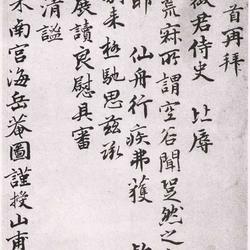 首再拜
徵君侍史 比辱
荒寂所謂空谷聞跫然之
即 仙舟行疾弗獲
別來極馳思茲承
展讀良慰具審
清謐
米南宮海岳菴圖謹授山甫